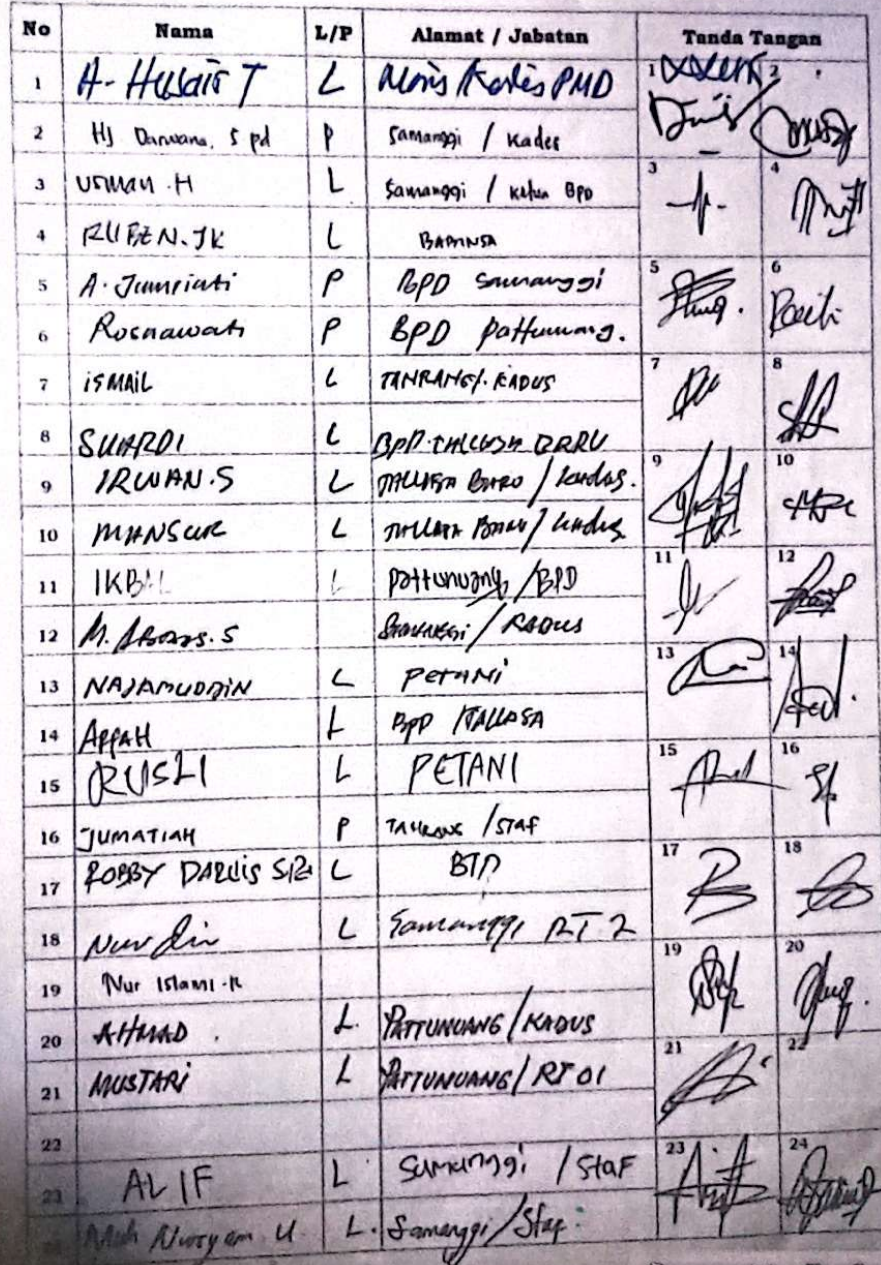 No Nama L/P Alamat / Jabatan Tanda Tangan
1 A. Husair T L Kadis PMD 1 2
2 Hj Darwana, S pd P Samanggi / Kades
3 USMAN .H L Samanggi / Ketua BPD 3 4
4 RUBEN. JK L BABINSA
5 A. Jumriati P BPD Samanggi 5 6
6 Rosnawati P BPD Pattunuang.
7 iSMAIL L KADUS 7 8
8 SUARDI L BPD. TALLASA BARU
9 IRWAN.S L TALLASA BARU / Kadus. 9 10
10 MANSUR L TALLASA BARU / Kadus
11 IKBAL L Pattunuang /BPD 11 12
12 M. Abbas. S Samanggi / KADUS
13 NAJAMUDDIN L PETANI 13 14
14 APPAH L BPD /TALLASA
15 RUSLI L PETANI 15 16
16 JUMATIAH P /STAF
17 ROBBY DARWIS L 17 18
18 Nurdin L Samanggi RT 2
19 Nur Islami .R 19 20
20 AHMAD . L. PATTUNUANG / KADUS
21 MUSTARI L PATTUNUANG / RT 01 21 22
22
23 ALIF L Samanggi / Staf 23 24
Muh Nursyam. U L. Samanggi / Staf.